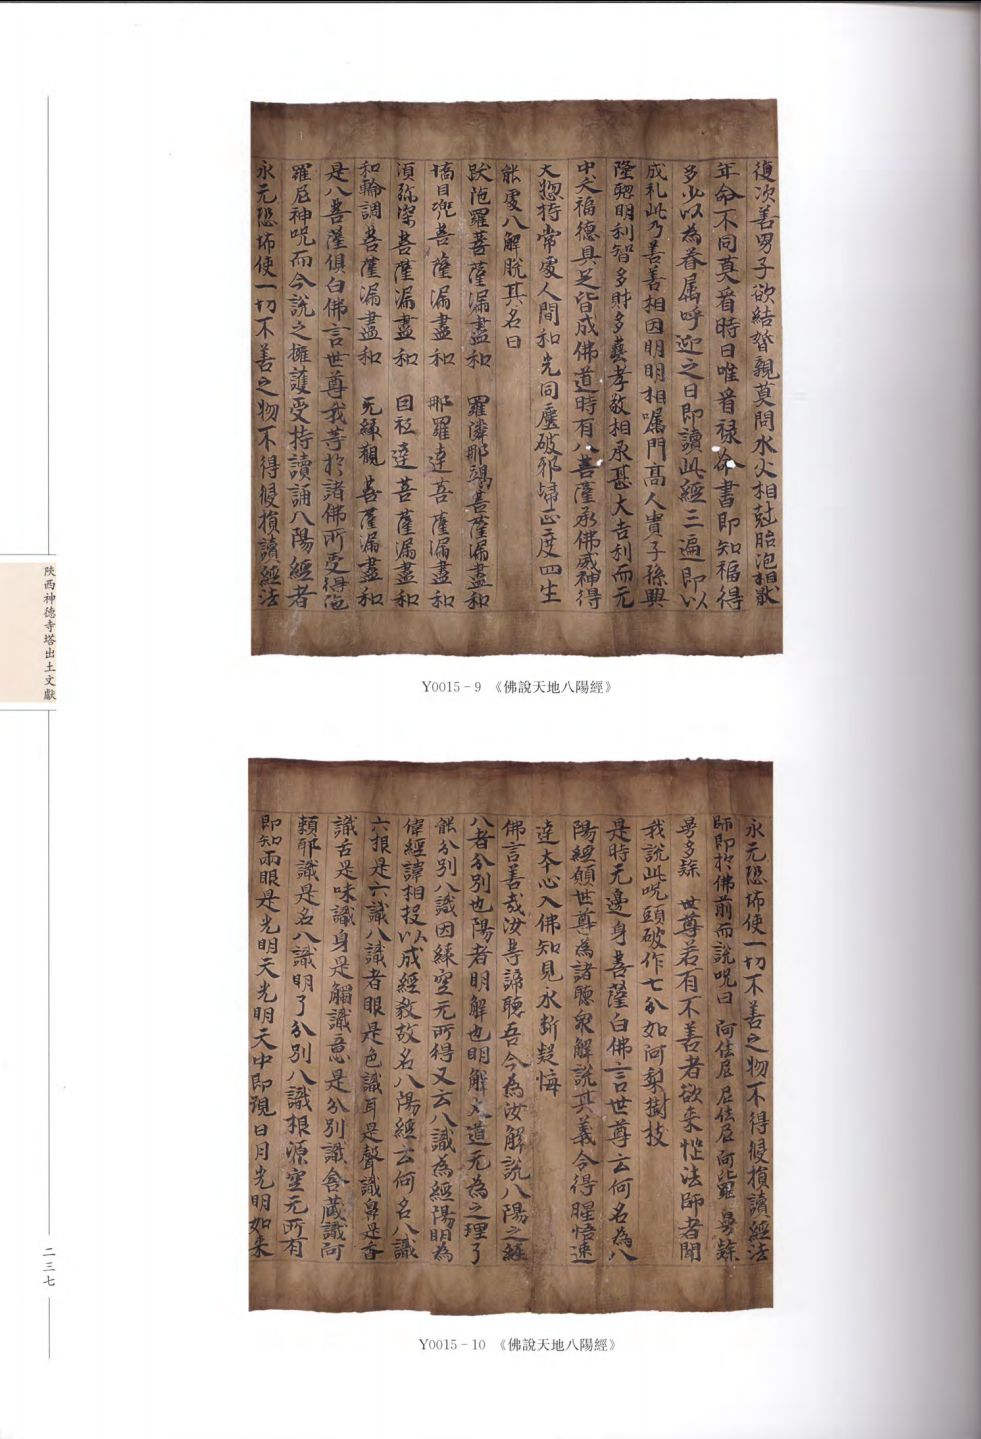 復次善男子欲結婚親莫問水火相尅胎泡相猒
年命不同莫看時日唯看禄命書即知福得
多少以為眷屬呼迎之日即讀此經三遍即以
成礼此乃善善相因明明相囑門高人貴子孫興
隆聡明利智多財多藝孝敬相承甚大吉利而无
中夭福德具足皆成佛道時有八菩薩承佛威神得
大惣持常處人間和光同塵破邪歸正度四生
能處八解脫其名曰
跋陁羅菩薩漏盡和 羅憐那竭菩薩漏盡和
憍目兜菩薩漏盡和 那羅達菩薩漏盡和
湏弥深菩薩漏盡和 因衹達菩薩漏盡和
和輪調菩薩漏盡和 无緣觀菩薩漏盡和
是八菩薩俱白佛言世尊我等扵諸佛所受得陁
羅尼神呪而今說之擁護受持讀誦八陽經者
永元恐怖使一切不善之物不得侵損讀經法
Y0015-9 《佛說天地八陽經》
永元恐怖使一切不善之物不得侵損讀經法
師即扵佛前而說呪曰 阿佉尼 尼佉尼 阿毗羅 曼隸
曼多隸 世尊若有不善者欲来惱法師者聞
我說此呪頭破作七分如阿梨樹枝
是時无邊身菩薩白佛言世尊云何名為八
陽經願世尊為諸聴衆解說其義令得醒悟速
達本心入佛知見永斷疑悔
佛言善哉汝等諦聴吾今為汝解說八陽之經
八者分別也陽者明解也明解大道无為之理了
能分別八識因緣空元所得又云八識為經陽明為
偉經諱相投以成經教故名八陽經云何名八識
六根是六識八識者眼是色識耳是聲識鼻是香
識舌是味識身是觸識意是分別識含藏識阿
頼耶識是名八識明了分別八識根源空元所有
即知兩眼是光明天光明天中即現日月光明如来
Y0015-10 《佛說天地八陽經》
陝西神德寺塔出土文獻
二三七